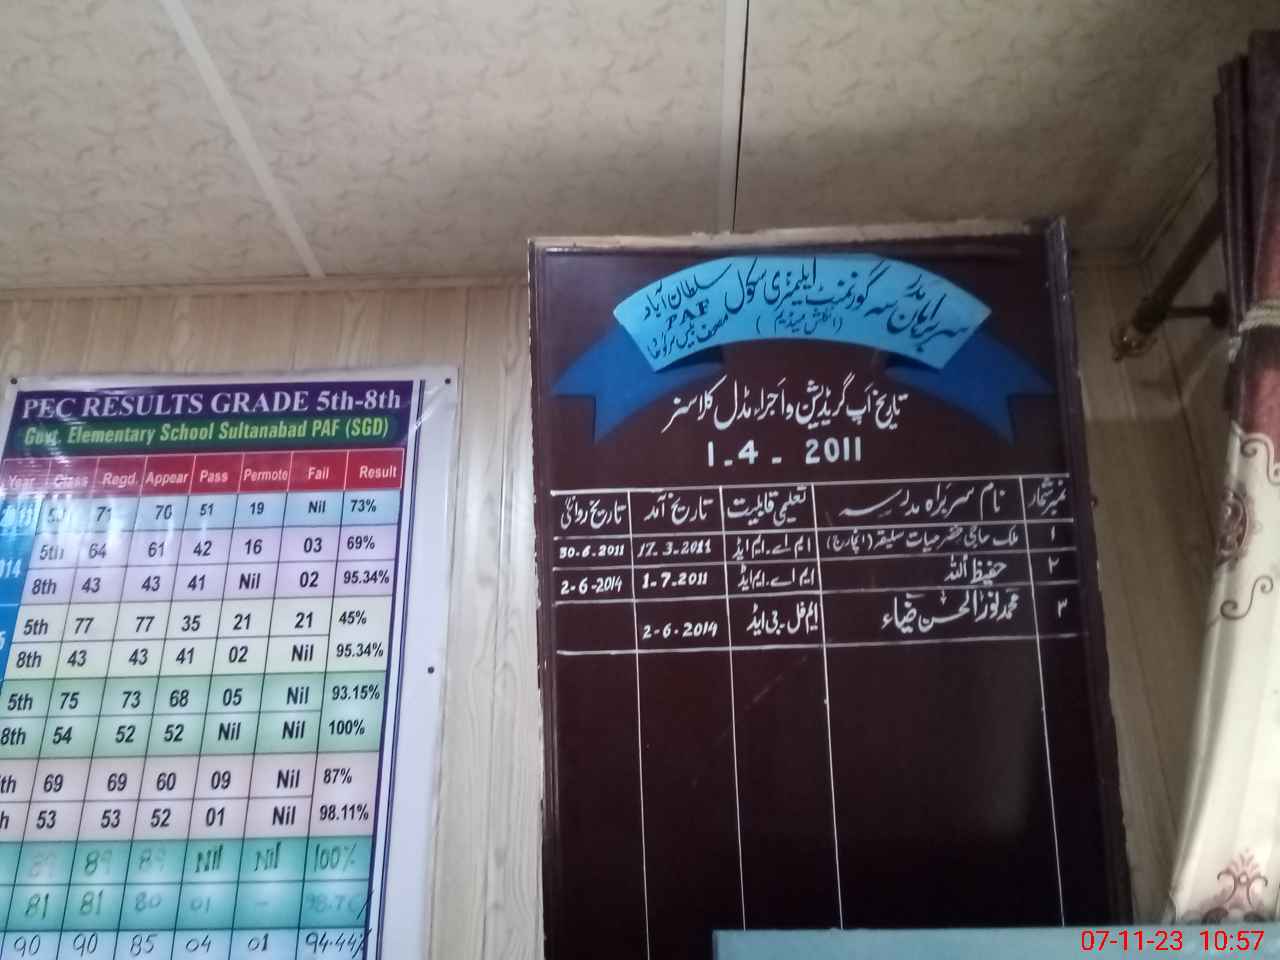 PEC RESULTS GRADE 5th-8th
Govt. Elementary School Sultanabad PAF (SGD)
Year Class Regd. Appear Pass Permote Fail Result
2013 5th 71 70 51 19 Nil 73%
2014 5th 64 61 42 16 03 69%
8th 43 43 41 Nil 02 95.34%
5th 77 77 35 21 21 45%
8th 43 43 41 02 Nil 95.34%
5th 75 73 68 05 Nil 93.15%
8th 54 52 52 Nil Nil 100%
69 69 60 09 Nil 87%
53 53 52 01 Nil 98.11%
89 89 89 Nil Nil 100%
81 81 80 01 -
90 90 85 04 01 94.44%
سربراہان مدرسہ گورنمنٹ ایلیمنٹری سکول سلطان آباد
(انگلش میڈیم) PAF
تاریخ اَپ گریڈیشن و اَجراء مڈل کلاسز
1-4-2011
نمبر شمار نام سربراہ مدرسہ تعلیمی قابلیت تاریخ آمد تاریخ روانگی
۱ ملک حاجی خضر حیات سلیقہ (انچارج) ایم اے۔ایم ایڈ 17.3.2011 30.6.2011
۲ حفیظ اللہ ایم اے۔ایم ایڈ 1-7-2011 2-6-2014
۳ محمد نورالحسن ضیاء ایم فل۔بی ایڈ 2-6-2014
07-11-23 10:57